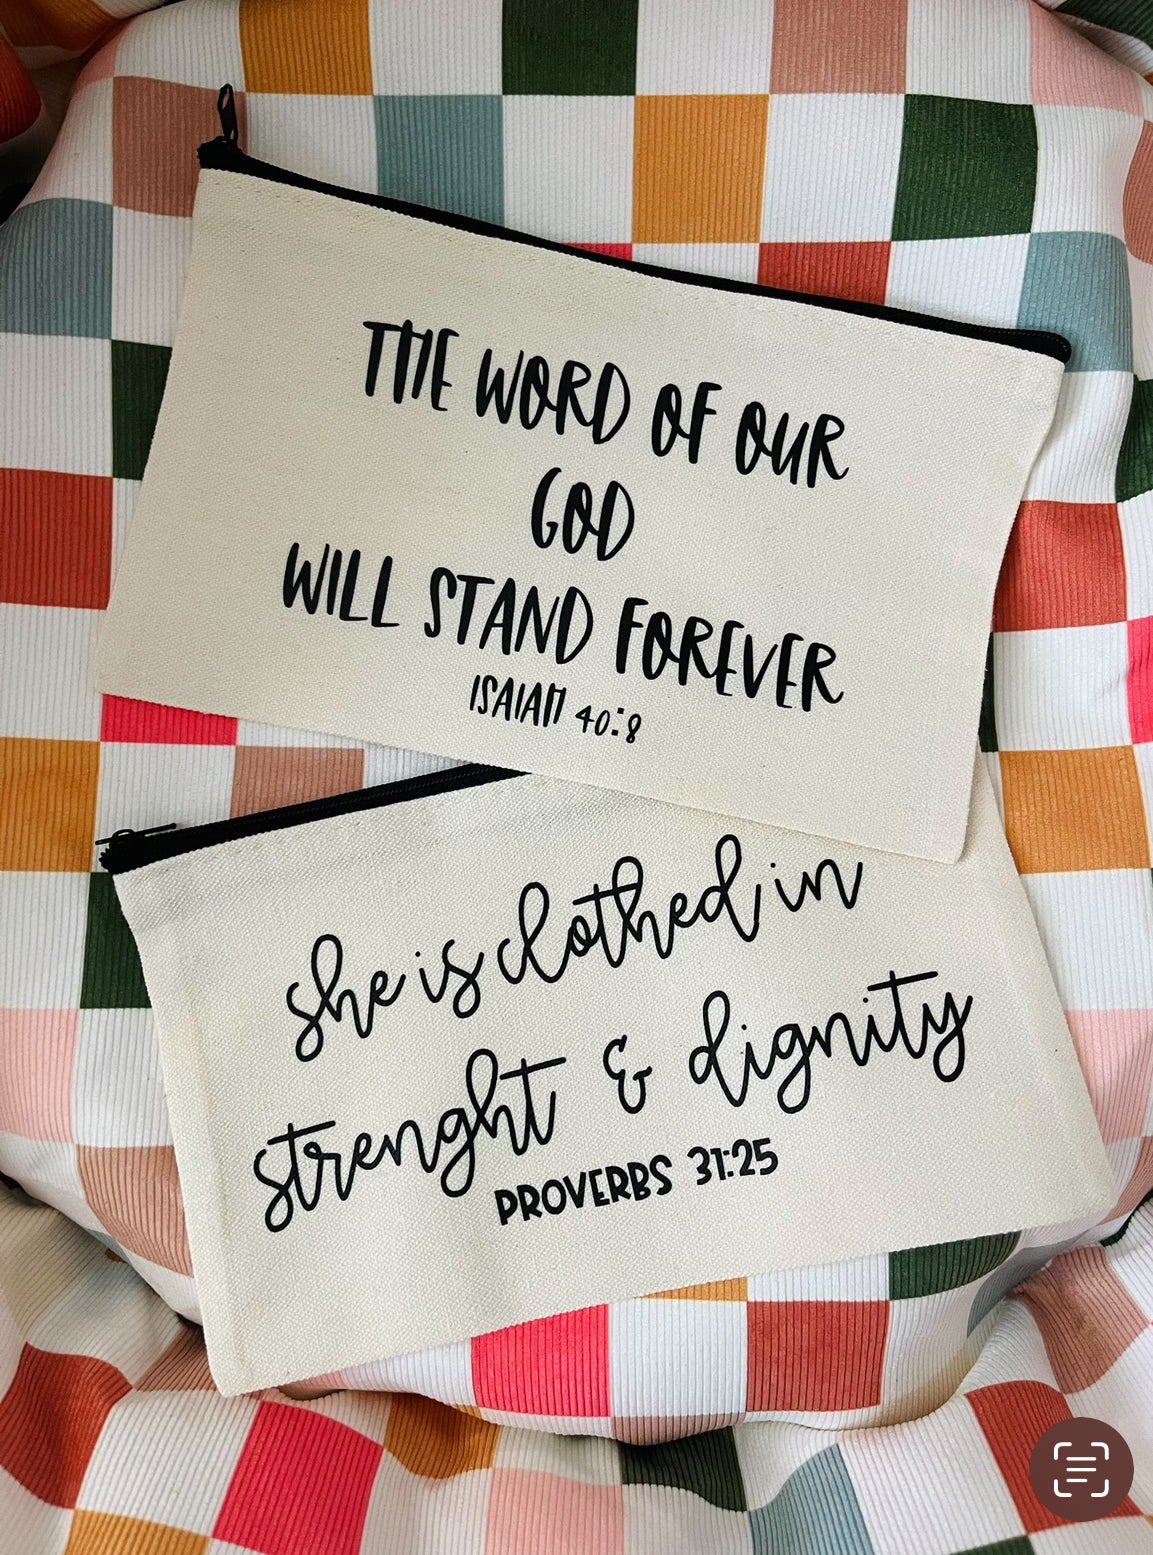 THE WORD OF OUR
GOD
WILL STAND FOREVER
ISAIAH 40:8
she is clothed in
strenght & dignity
PROVERBS 31:25